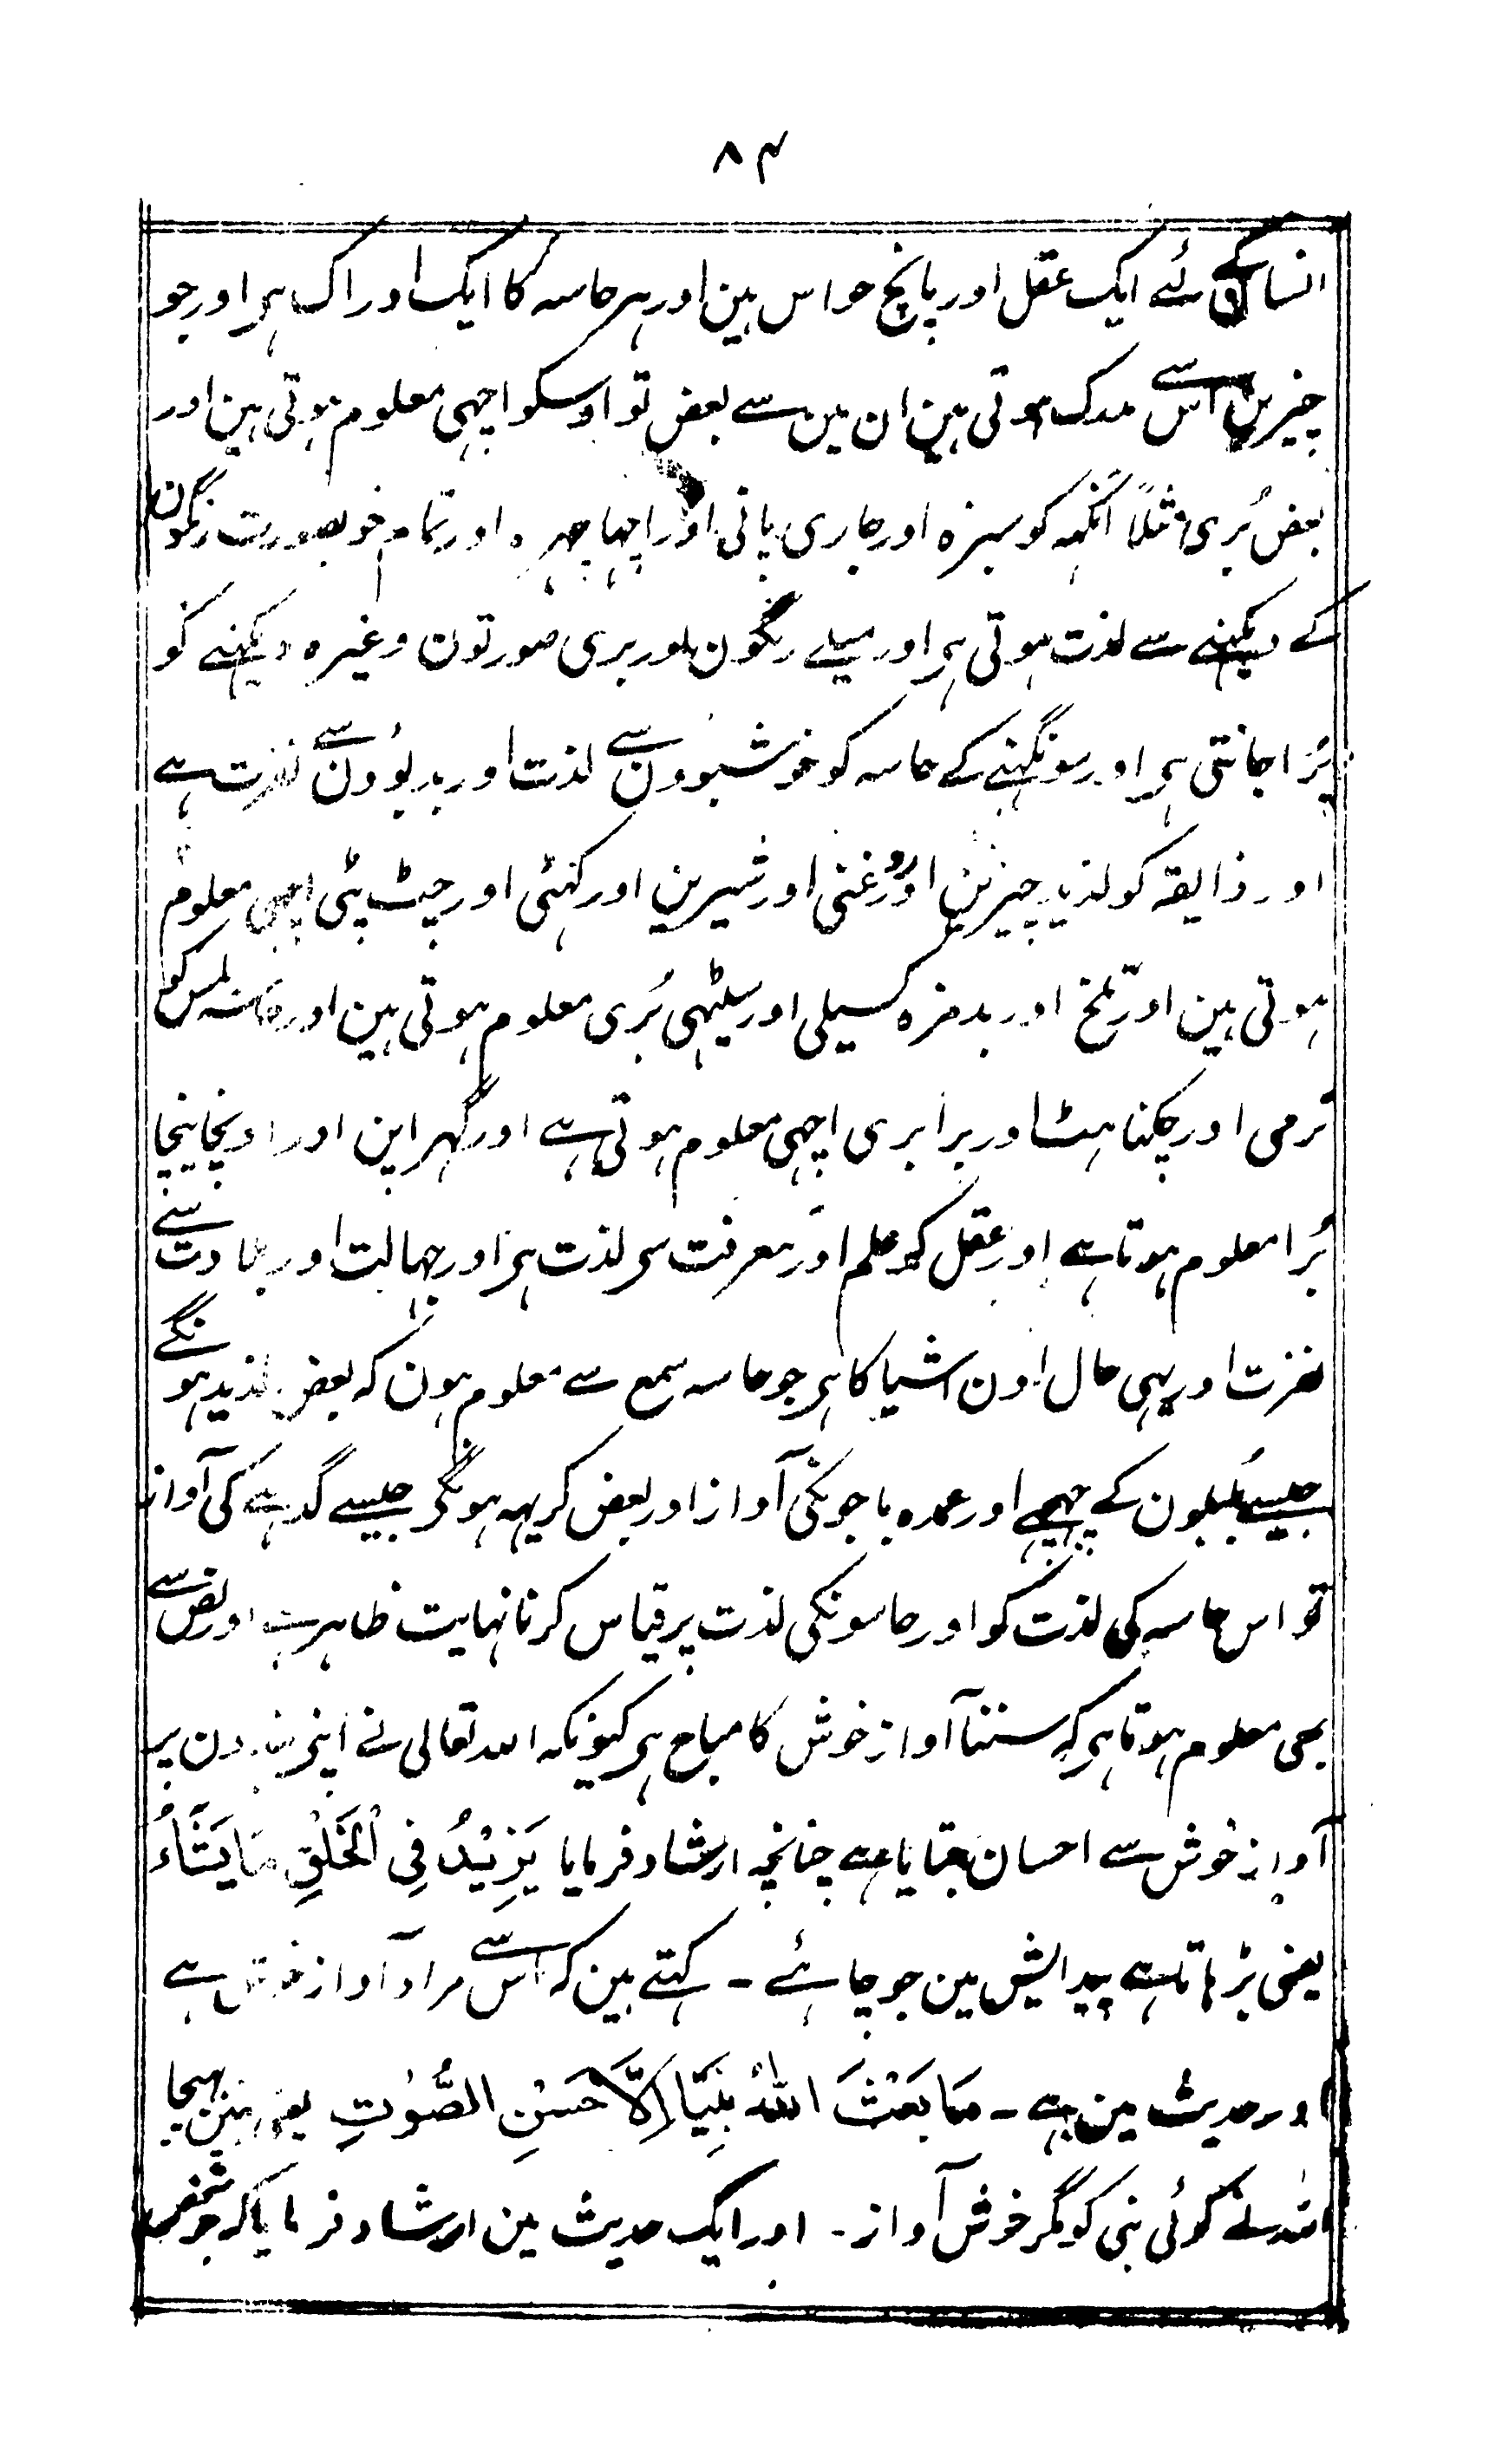 ۸۴
انسان کے لئے ایک عقل اور پانچ حواس ہین اور ہر حاسہ کا ایک ادراک ہے اور جو
چیزین اس سے مدرک ہوتی ہین ان مین سے بعض تو اوسکو اچہی معلوم ہوتی ہین اور
بعض بُری مثلاً آنکہہ کو سبزہ اور جاری پانی اور اچہا چہرہ اور تمام خوبصورت رنگون
کے دیکہنے سے لذت ہوتی ہے اور میلے رنگون اور بری صورتون وغیرہ دیکہنے کو
بُرا جانتی ہے اور سونگہنے کے حاسہ کو خوشبوون سے لذت اور بدبوُون سے نفرت ہے
اور ذایقہ کو لذیذ چیزین اور روغنی اور شیرین اور کہٹی اور چٹ پٹی اچہی معلوم
ہوتی ہین اور تلخ اور بدمزہ کسیلی اور سیٹہی بُری معلوم ہوتی ہین اور حاسہ لمس کو
نرمی اور چکناہٹ اور برابری اچہی معلوم ہوتی ہے اور کُہراپن اور اونچا نیچا
بُرا معلوم ہوتا ہے اور عقل کو علم اور معرفت سے لذت ہے اور جہالت اور بلادت سے
نفرت اور یہی حال اون اشیا کا ہے جو حاسہ سمع سے معلوم ہون کہ بعض لذیذ ہونگے
جیسے بُلبلون کے چہچہے اور عمدہ باجونکی آواز اور بعض کریہہ ہونگے جیسے گدہے کی آواز
تو اس حاسہ کی لذت کو اور حاسونکی لذت پر قیاس کرنا نہایت ظاہر ہے اور نص سے
بھی معلوم ہوتا ہے کہ سننا آواز خوش کا مباح ہے کیونکہ اللہ تعالی نے اپنے بندون پر
آواز خوش سے احسان جتایا ہے چنانچہ ارشاد فرمایا یَزِیْدُ فِی الْخَلْقِ مَا یَشَآءُ
یعنی بڑہاتا ہے پیدایش مین جو چاہئے ۔ کہتے ہین کہ اس سے مراد آواز خوش ہے
اور حدیث مین ہے ۔ مَا بَعَثَ اللہُ نَبِیًّا اِلَّا حَسَنِ الصَّوْتِ یعنی نہین بہیجا
اللہ نے کوئی نبی کو مگر خوش آواز ۔ اور ایک حدیث مین ارشاد فرمایا کہ جو شخص